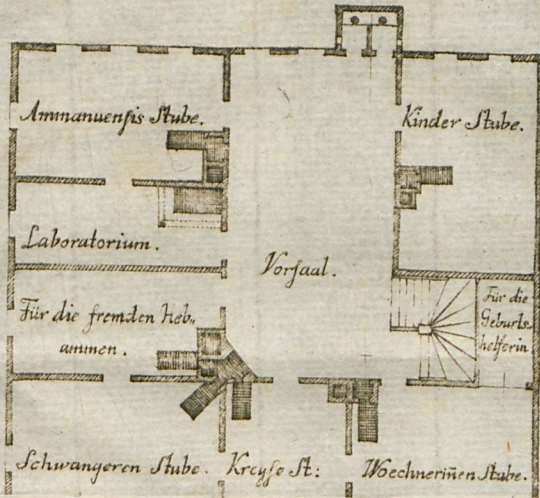 Ammanuensis Stube.
Kinder Stube.
Laboratorium.
Vorsaal.
Für die fremden Heb„
ammen.
Für die
Geburts„
helferin
Schwangeren Stube.
Kreyse St:
Woechneriñen Stube.